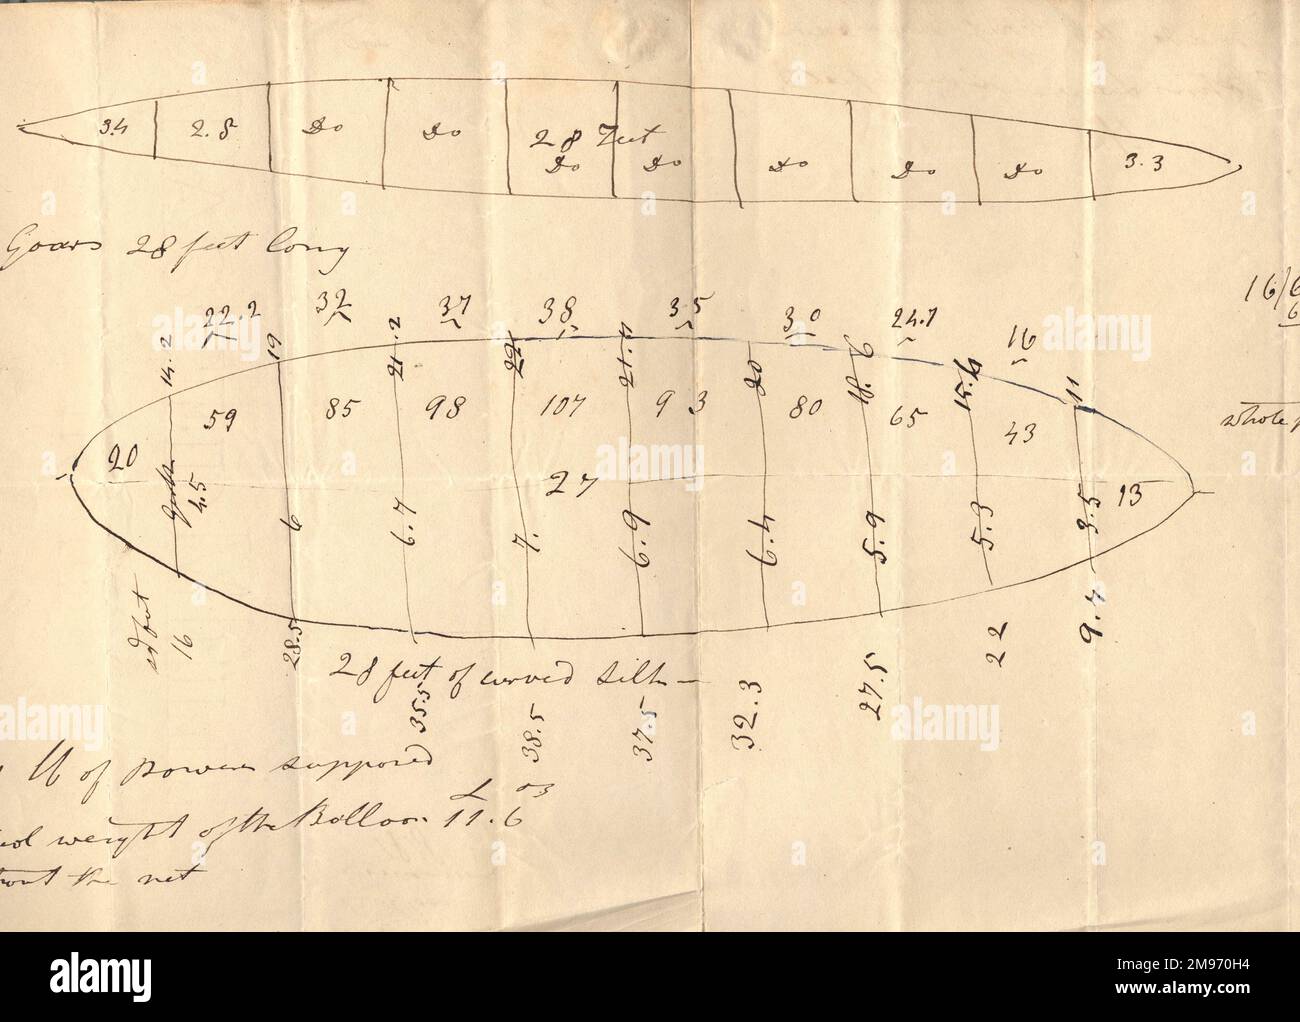 3.4 2.8 Do Do 28 Feet Do Do Do Do Do 3.3
Goars 28 feet long
22.2 32 37 38 35 30 24.7 16
14.2 19 21.2 22 21.4 20 18.9 15.4 11
20 59 85 98 107 93 80 65 43 13
27
4.5 6 6.7 7. 6.9 6.4 5.9 5.3 3.5
16 28.5 35.5 38.5 37.5 32.3 27.5 22 9.7
28 feet of curved silk
lb of power supposed
weight of the Balloon 11.6
the net
16/6
6
whole
alamy
Image ID: 2M970H4
www.alamy.com